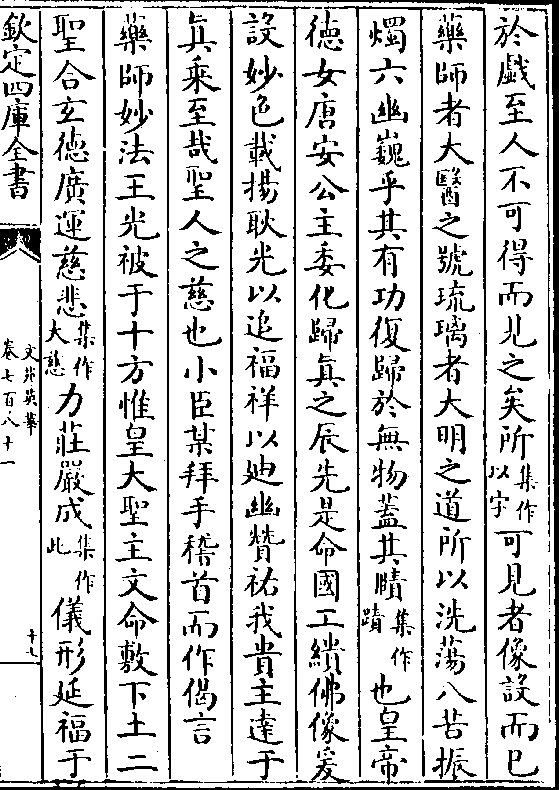 於戲至人不可得而見之矣所集作以字可見者像設而已
藥師者大醫之號琉璃者大明之道所以洗蕩八苦振
燭六幽巍乎其有功復歸於無物蓋其賾集作蹟也皇帝
徳女唐安公主委化歸真之辰先是命國工繢佛像爰
設妙色載揚耿光以追福祥以廸幽贊祐我貴主達于
真乘至哉聖人之慈也小臣某拜手稽首而作偈言
藥師妙法王光被于十方惟皇大聖主文命敷下土二
聖合玄徳廣運慈悲集作大慈力莊嚴成集作此儀形延福于
欽定四庫全書
文苑英華
卷七百八十一
十七